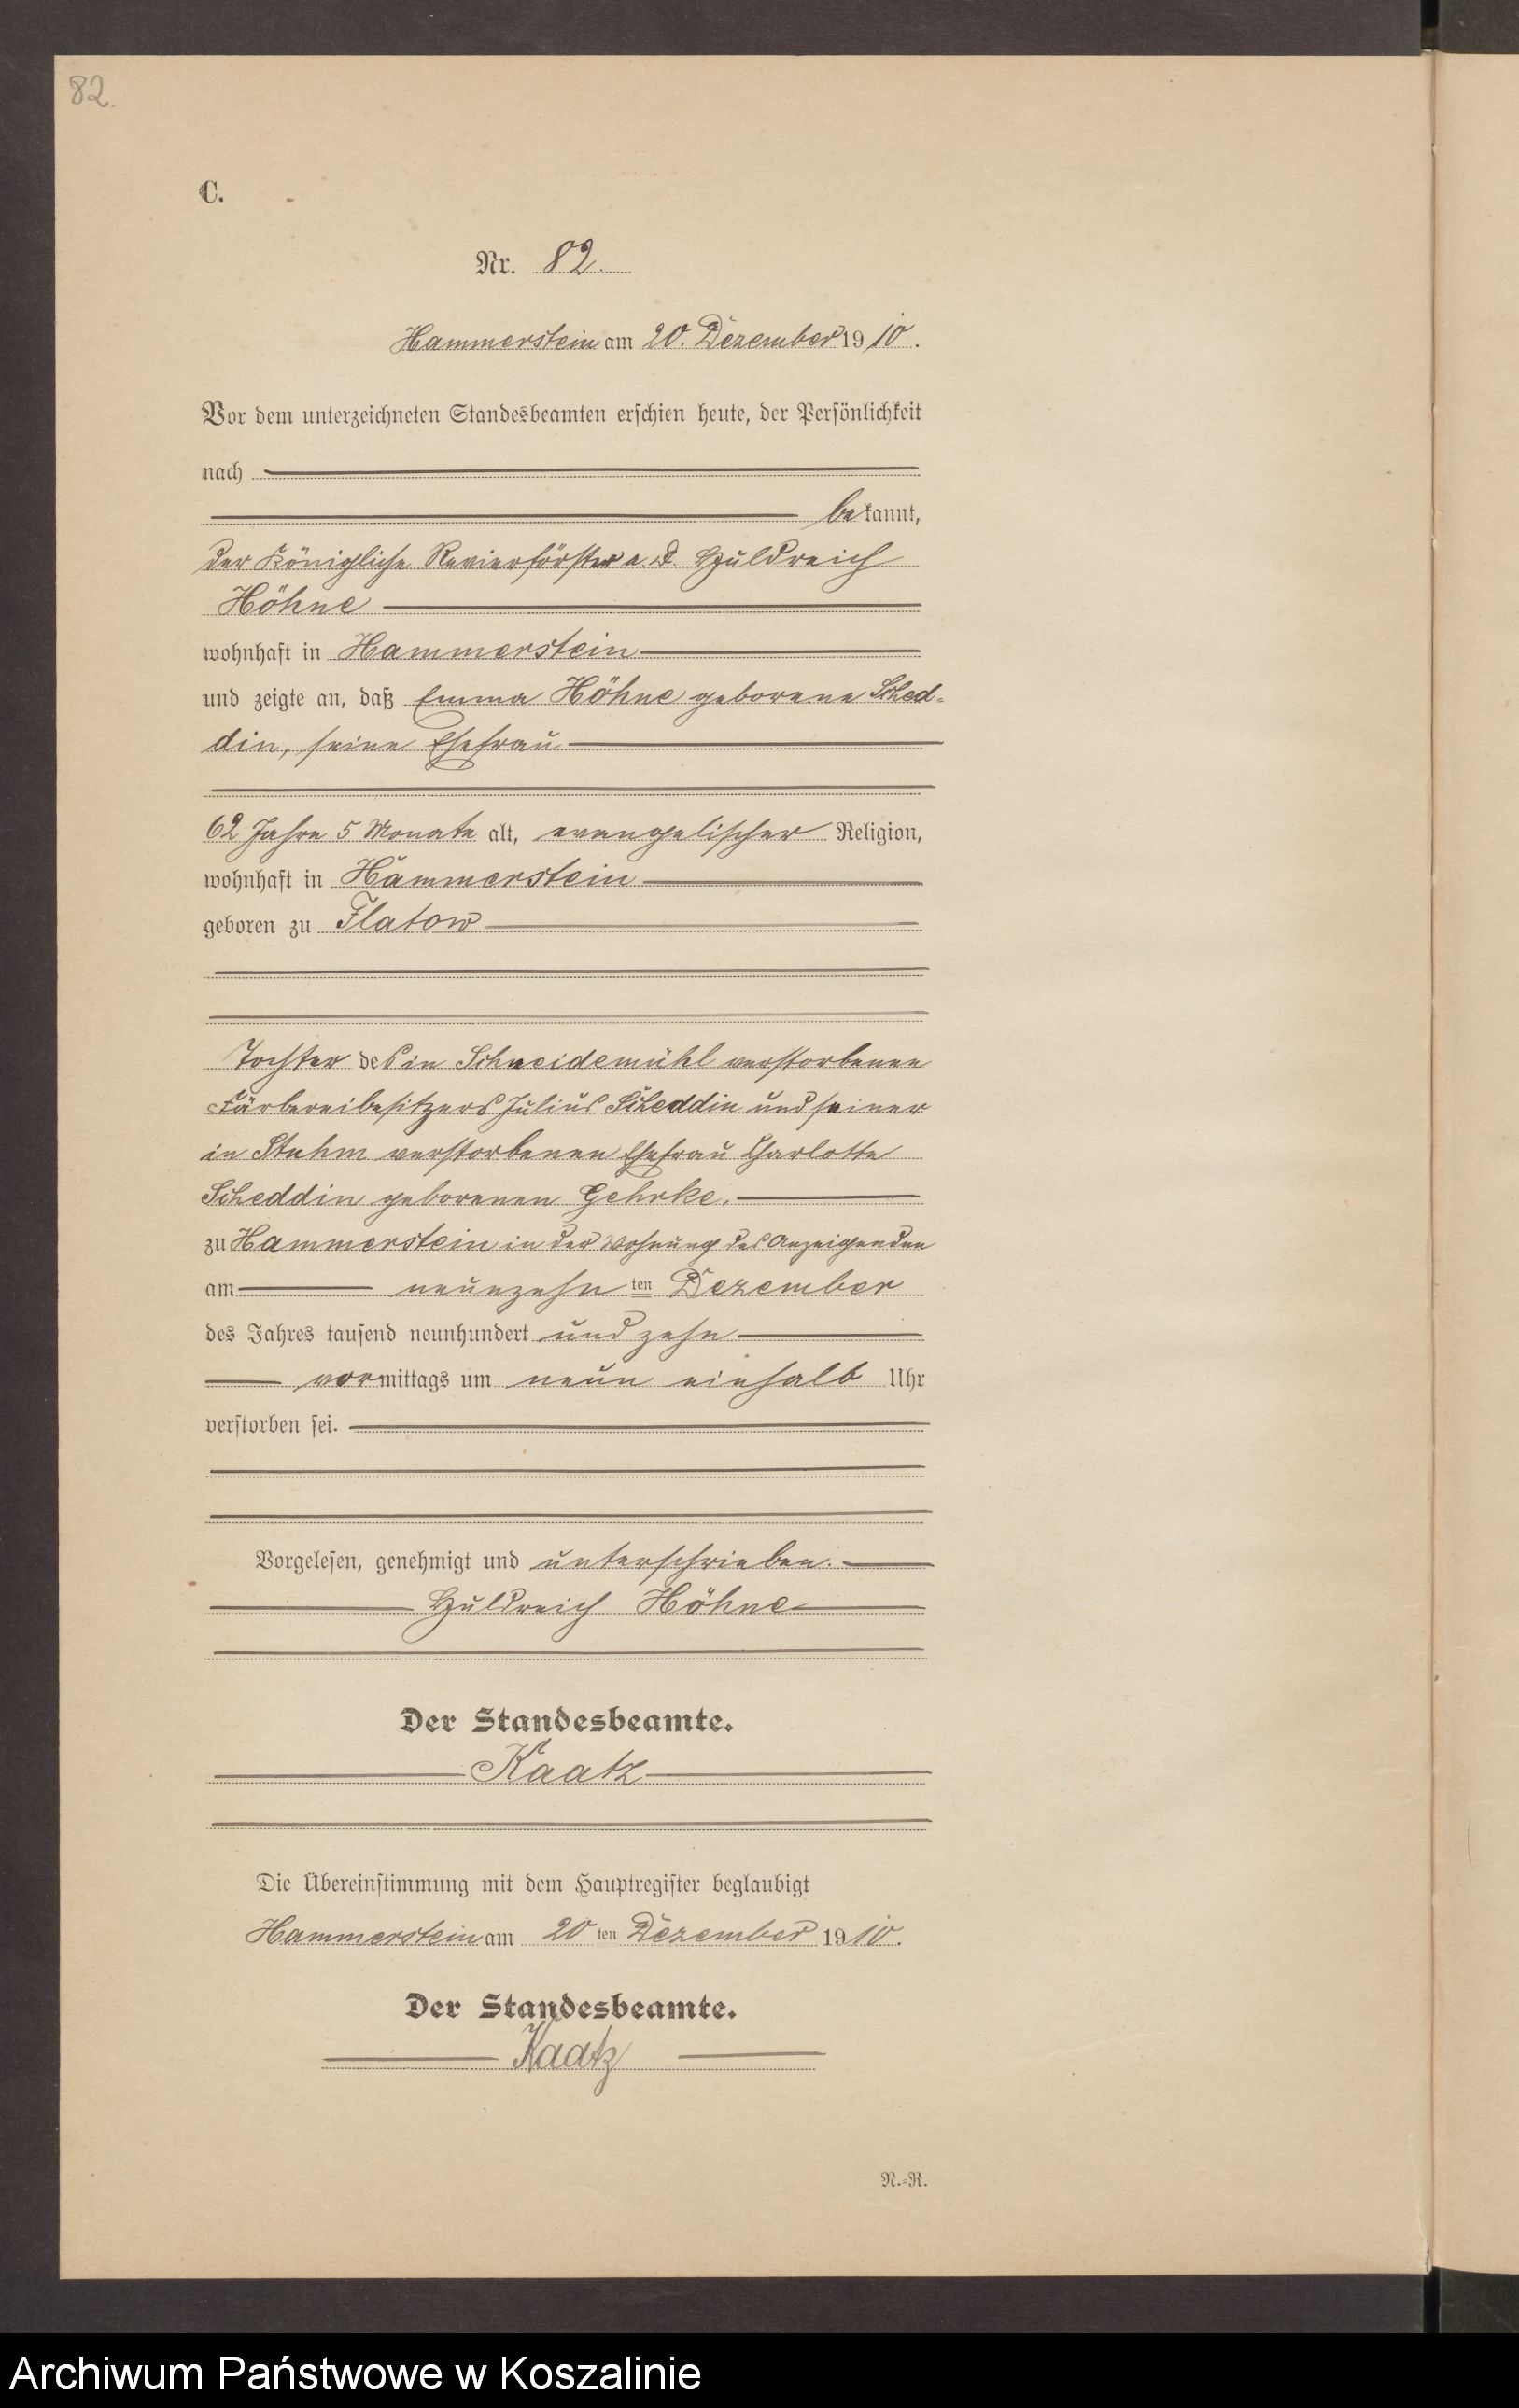 82.
C.
Nr. 82.
Hammerstein am 20. Dezember 1910.
Vor dem unterzeichneten Standesbeamten erschien heute, der Persönlichkeit
nach
bekannt,
der Königliche Revierförster a. D. Huldreich
Höhne
wohnhaft in Hammerstein
und zeigte an, daß Emma Höhne geborene Sched-
din, seine Ehefrau
62 Jahre 5 Monate alt, evangelischer Religion,
wohnhaft in Hammerstein
geboren zu Flatow
Tochter des in Schneidemühl verstorbenen
Färbereibesitzers Julius Scheddin und seiner
in Stuhm verstorbenen Ehefrau Charlotte
Scheddin geborenen Gehrke.
zu Hammerstein in der Wohnung des Anzeigenden
am neunzehn ten Dezember
des Jahres tausend neunhundert und zehn
vormittags um neun einhalb Uhr
verstorben sei.
Vorgelesen, genehmigt und unterschrieben.
Huldreich Höhne
Der Standesbeamte.
Kaatz
Die Übereinstimmung mit dem Hauptregister beglaubigt
Hammerstein am 20 ten Dezember 1910.
Der Standesbeamte.
Kaatz
N.-R.
Archiwum Państwowe w Koszalinie